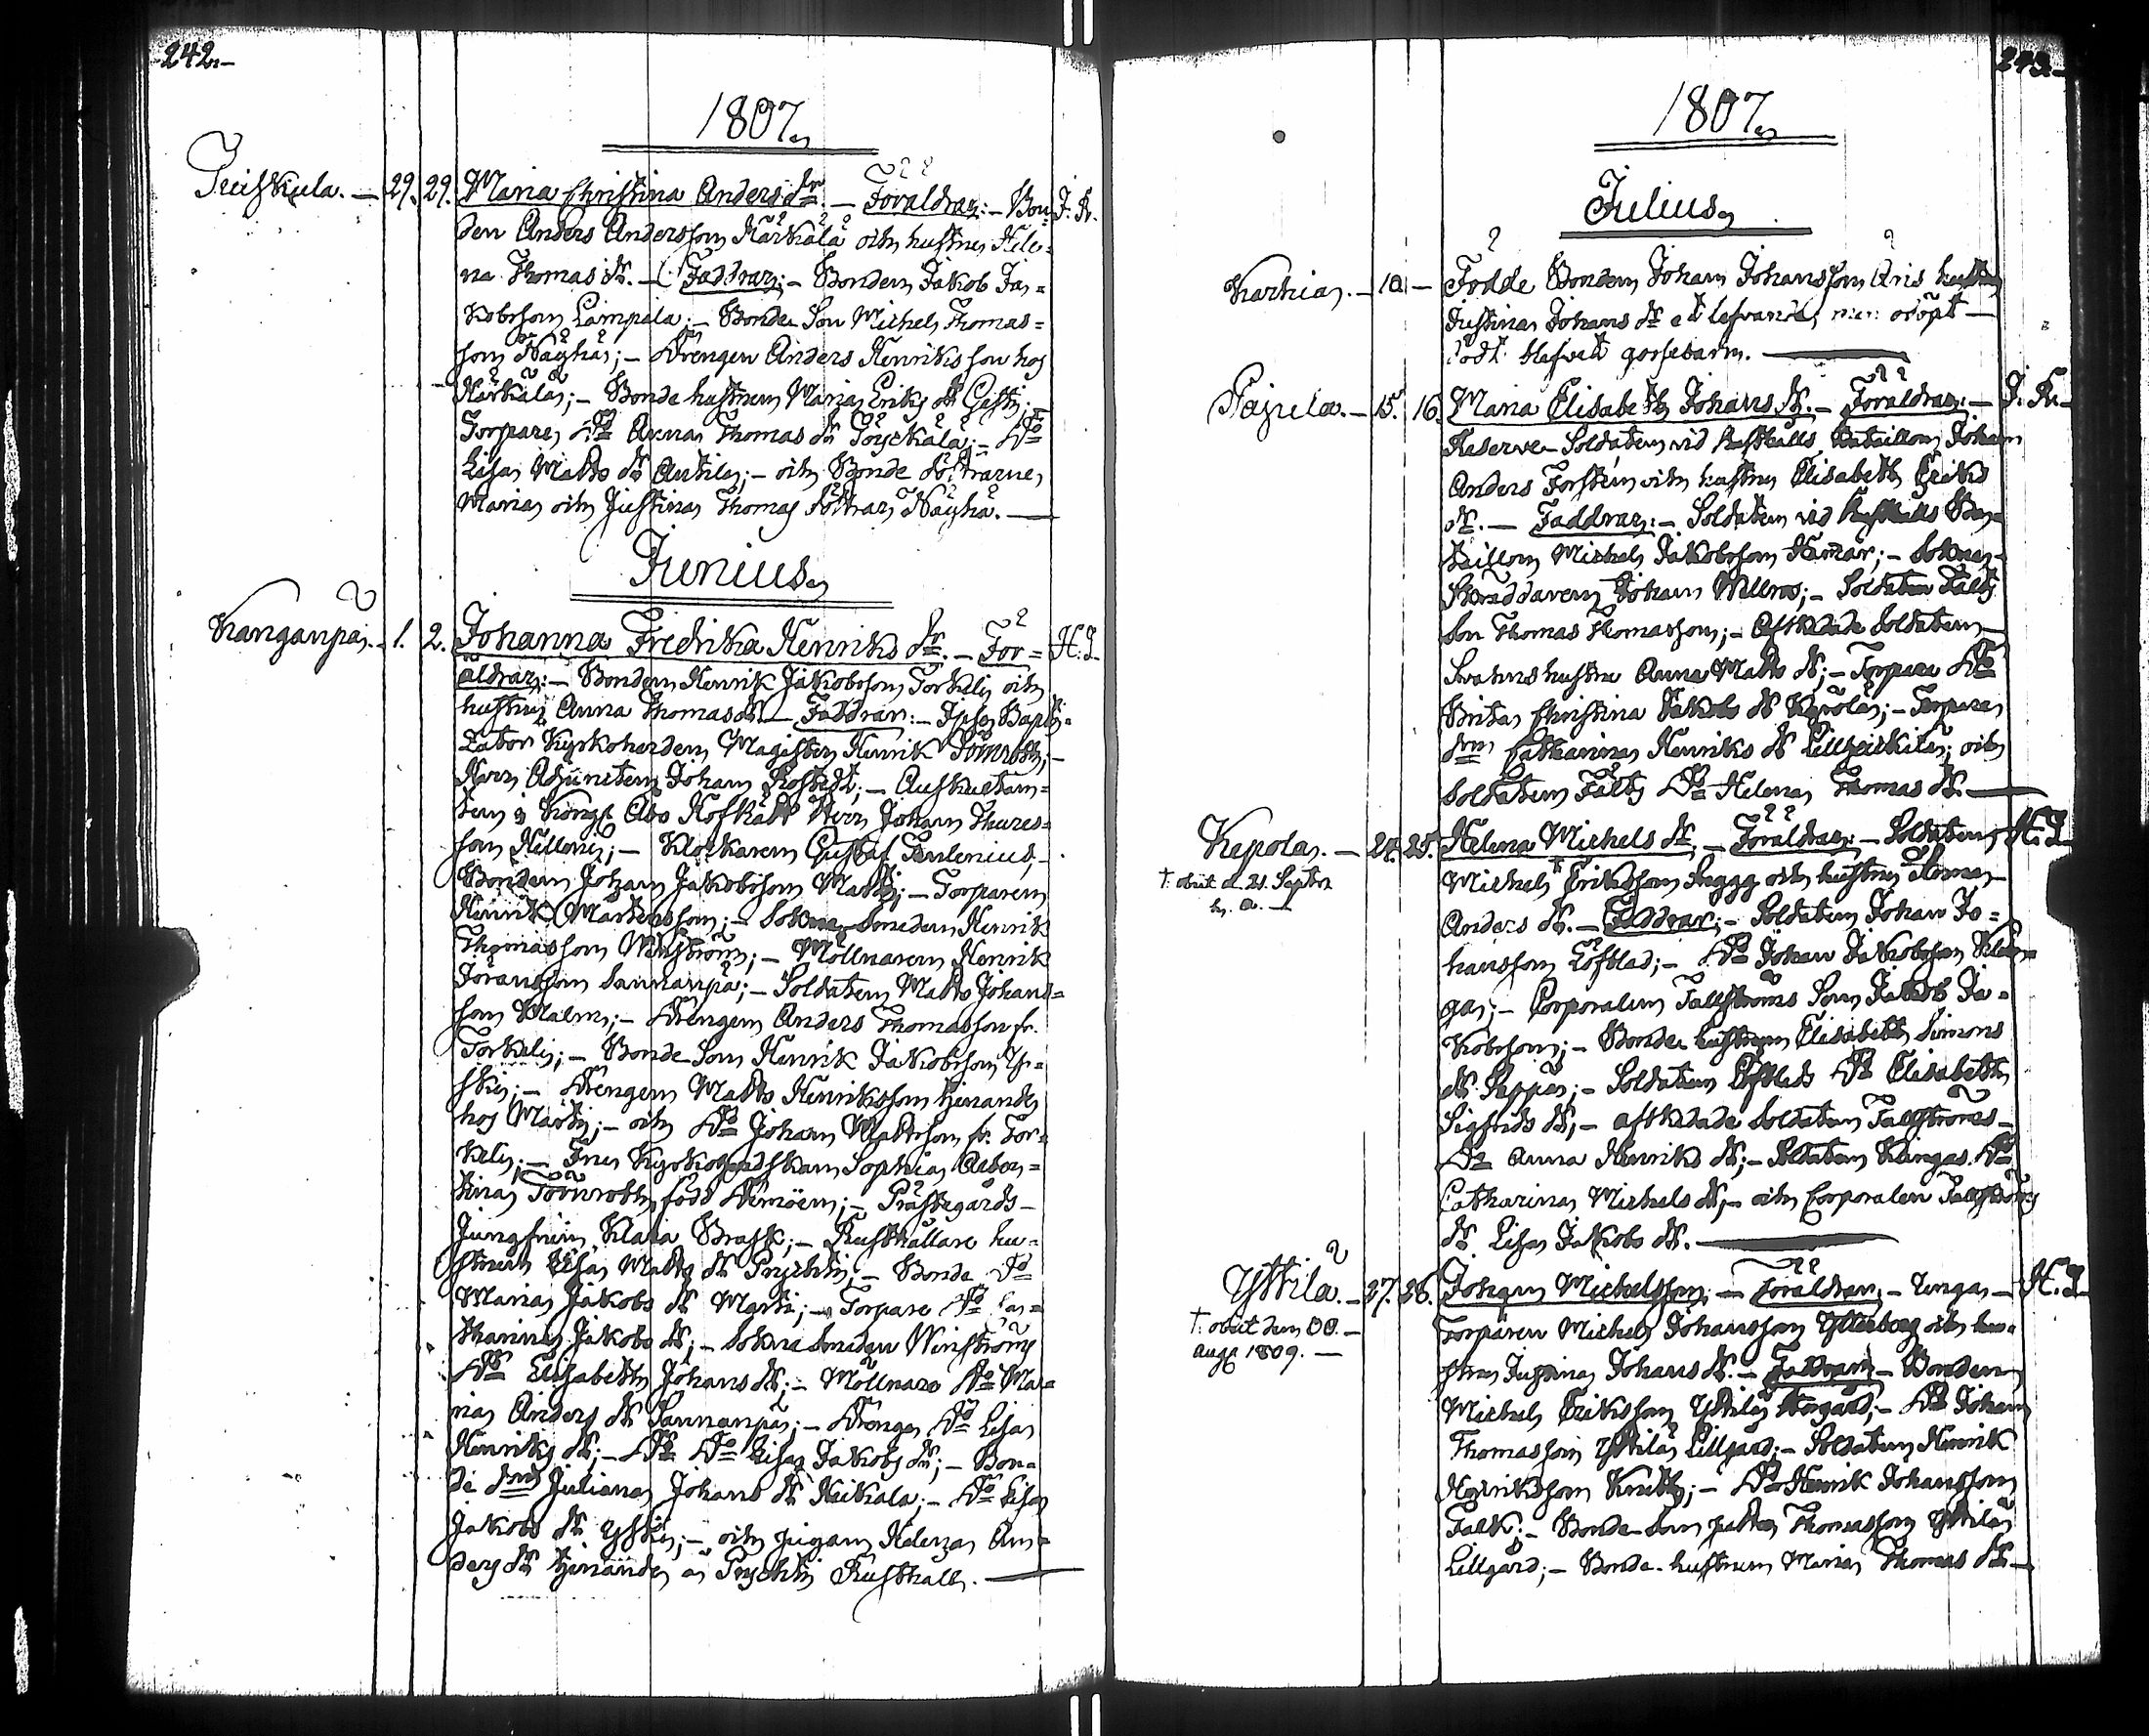 242.
1807.
Maria Christina Anders dr. — Föräldrar: — Bon- J. R.
den Anders Andersson Kärkälä och hustrun Hele-
na Thomas dr. — Faddrar: — Bonden Jakob Ja-
kobsson Lämpälä; — Bonde Son Michel Thomas-
son Näyhä; — Drengen Anders Henriksson hos
Kärkälä; — Bonde hustrun Maria Eriks dr
Torpare Do Anna Thomas dr Do
Lisa Matts dr Anttila; — och Bonde döttrarne
Maria och Justina Thomas döttrar Näyhä. —
Junius
Kanganpää. — 1. 2. Johanna Fredrika Henriks dr. — För- H. I.
äldrar: — Bonden Henrik Jakobsson Torkeli och
hustrun Anna Thomas dr — Faddrar: — Ipse Bapti-
zator Kyrkoherden Magister Henrik Törnroth; —
Herr Adjuncten Johan — Auskultan-
ten i Kongl Åbo Hofrätt Herr Johan Thures-
son — Klockaren Gustaf
Bonden Johan Jakobsson Martti; — Torparen
Henrik Mårtensson; — Sokne Smeden Henrik
Thomasson Winström; — Möllnaren Henrik
Göransson Sannanpää; — Soldaten Matts Johans-
son Malm; — Drengen Anders Thomasson fr.
Torkeli; — Bonde Son Henrik Jakobsson Ys-
kii; — Drengen Matts Henriksson tjenande
hos Martti; — och Do Johan Mattsson fr. Tor-
keli; — Fru Kyrkoherdskan Sophia
Törnroth, född — Prästegårds-
Jungfrun Klara Brask; — Rusthållare hu-
strun Lisa Matts dr Prychti; — Bonde Do
Maria Jakobs dr Martti; — Torpare Do Ca-
tharina Jakobs dr; — Sokne Smeden Winströms
Do Elisabeth Johans dr; — Möllnare Do Ma-
ria Anders dr Sannanpää; — Drenge Do Lisa
Henriks dr; — Do Do Lisa Jakobs dr; — Bon-
de dr Juliana Johans dr Heikala; — Do Lisa
Jakobs dr Yskii; — och pigan Helena An-
ders dr tjenande å Prychti Rusthåll. —
1807.
Julius
Karhia. — 10 — Födde Bonden Johan Johansson Aris hustru
Justina Johans dr ett lefvande, men odöpt
dödt blefvet gossebarn. —
Pajula. — 15. 16. Maria Elisabeth Johans dr. — Föräldrar: —
Reserve-Soldaten vid Rusthålls Bataillon Johan
Anders Forsten och hustrun Elisabeth Eriks
dr. — Faddrar: — Soldaten vid Rusthålls Ba-
taillon Michel Jakobsson — Sokne-
Skräddaren Johan Willens; — Soldaten Fälts
Son Thomas Thomasson; — Afskedade Soldaten
Svahns hustru Anna Matts dr; — Torpare Do
Brita Christina Jakobs dr Kyrölä; — Torpare
dr Catharina Henriks dr och
Soldaten Fälts Do Helena Thomas dr. —
Kepola. — 25. Helena Michels dr. — Föräldrar: — Soldaten H. I.
† obiit d. 21. Septbr
h. a. —
Michel Eriksson Snygg och hustrun
Anders dr. — Faddrar: — Soldaten Johan Jo-
hansson Löfblad; — Do Johan Jakobsson
Corporalen Tallströms Son Jakob Ja-
kobsson; — Bonde hustrun Elisabeth Simons
dr Seppä; — Soldaten Löfblads Do Elisabeth
Sigfrids dr; — afskedade Soldaten Tallströms
Do Anna Henriks dr; — Soldaten Klingas Do
Catharina Michels dr; — och Corporalen Tallströms
dr Lisa Jakobs dr. —
Yttilä. — 27. 28. Johan Michelsson. — Föräldrar: — unga — H. I.
† obiit den
Aug. 1809. —
Torparen Michel Johansson Ytterberg och hu-
strun Justina Johans dr. — Faddrar: — Bonden
Michel Eriksson Yttilä Storgård; — Do Johan
Thomasson Yttilä Lillgård; — Soldaten Henrik
Henriksson — Do Henrik Johansson
Falk; — Bonde Son Thomasson Yttilä
Lillgård; — Bonde hustrun Maria Thomas dr —